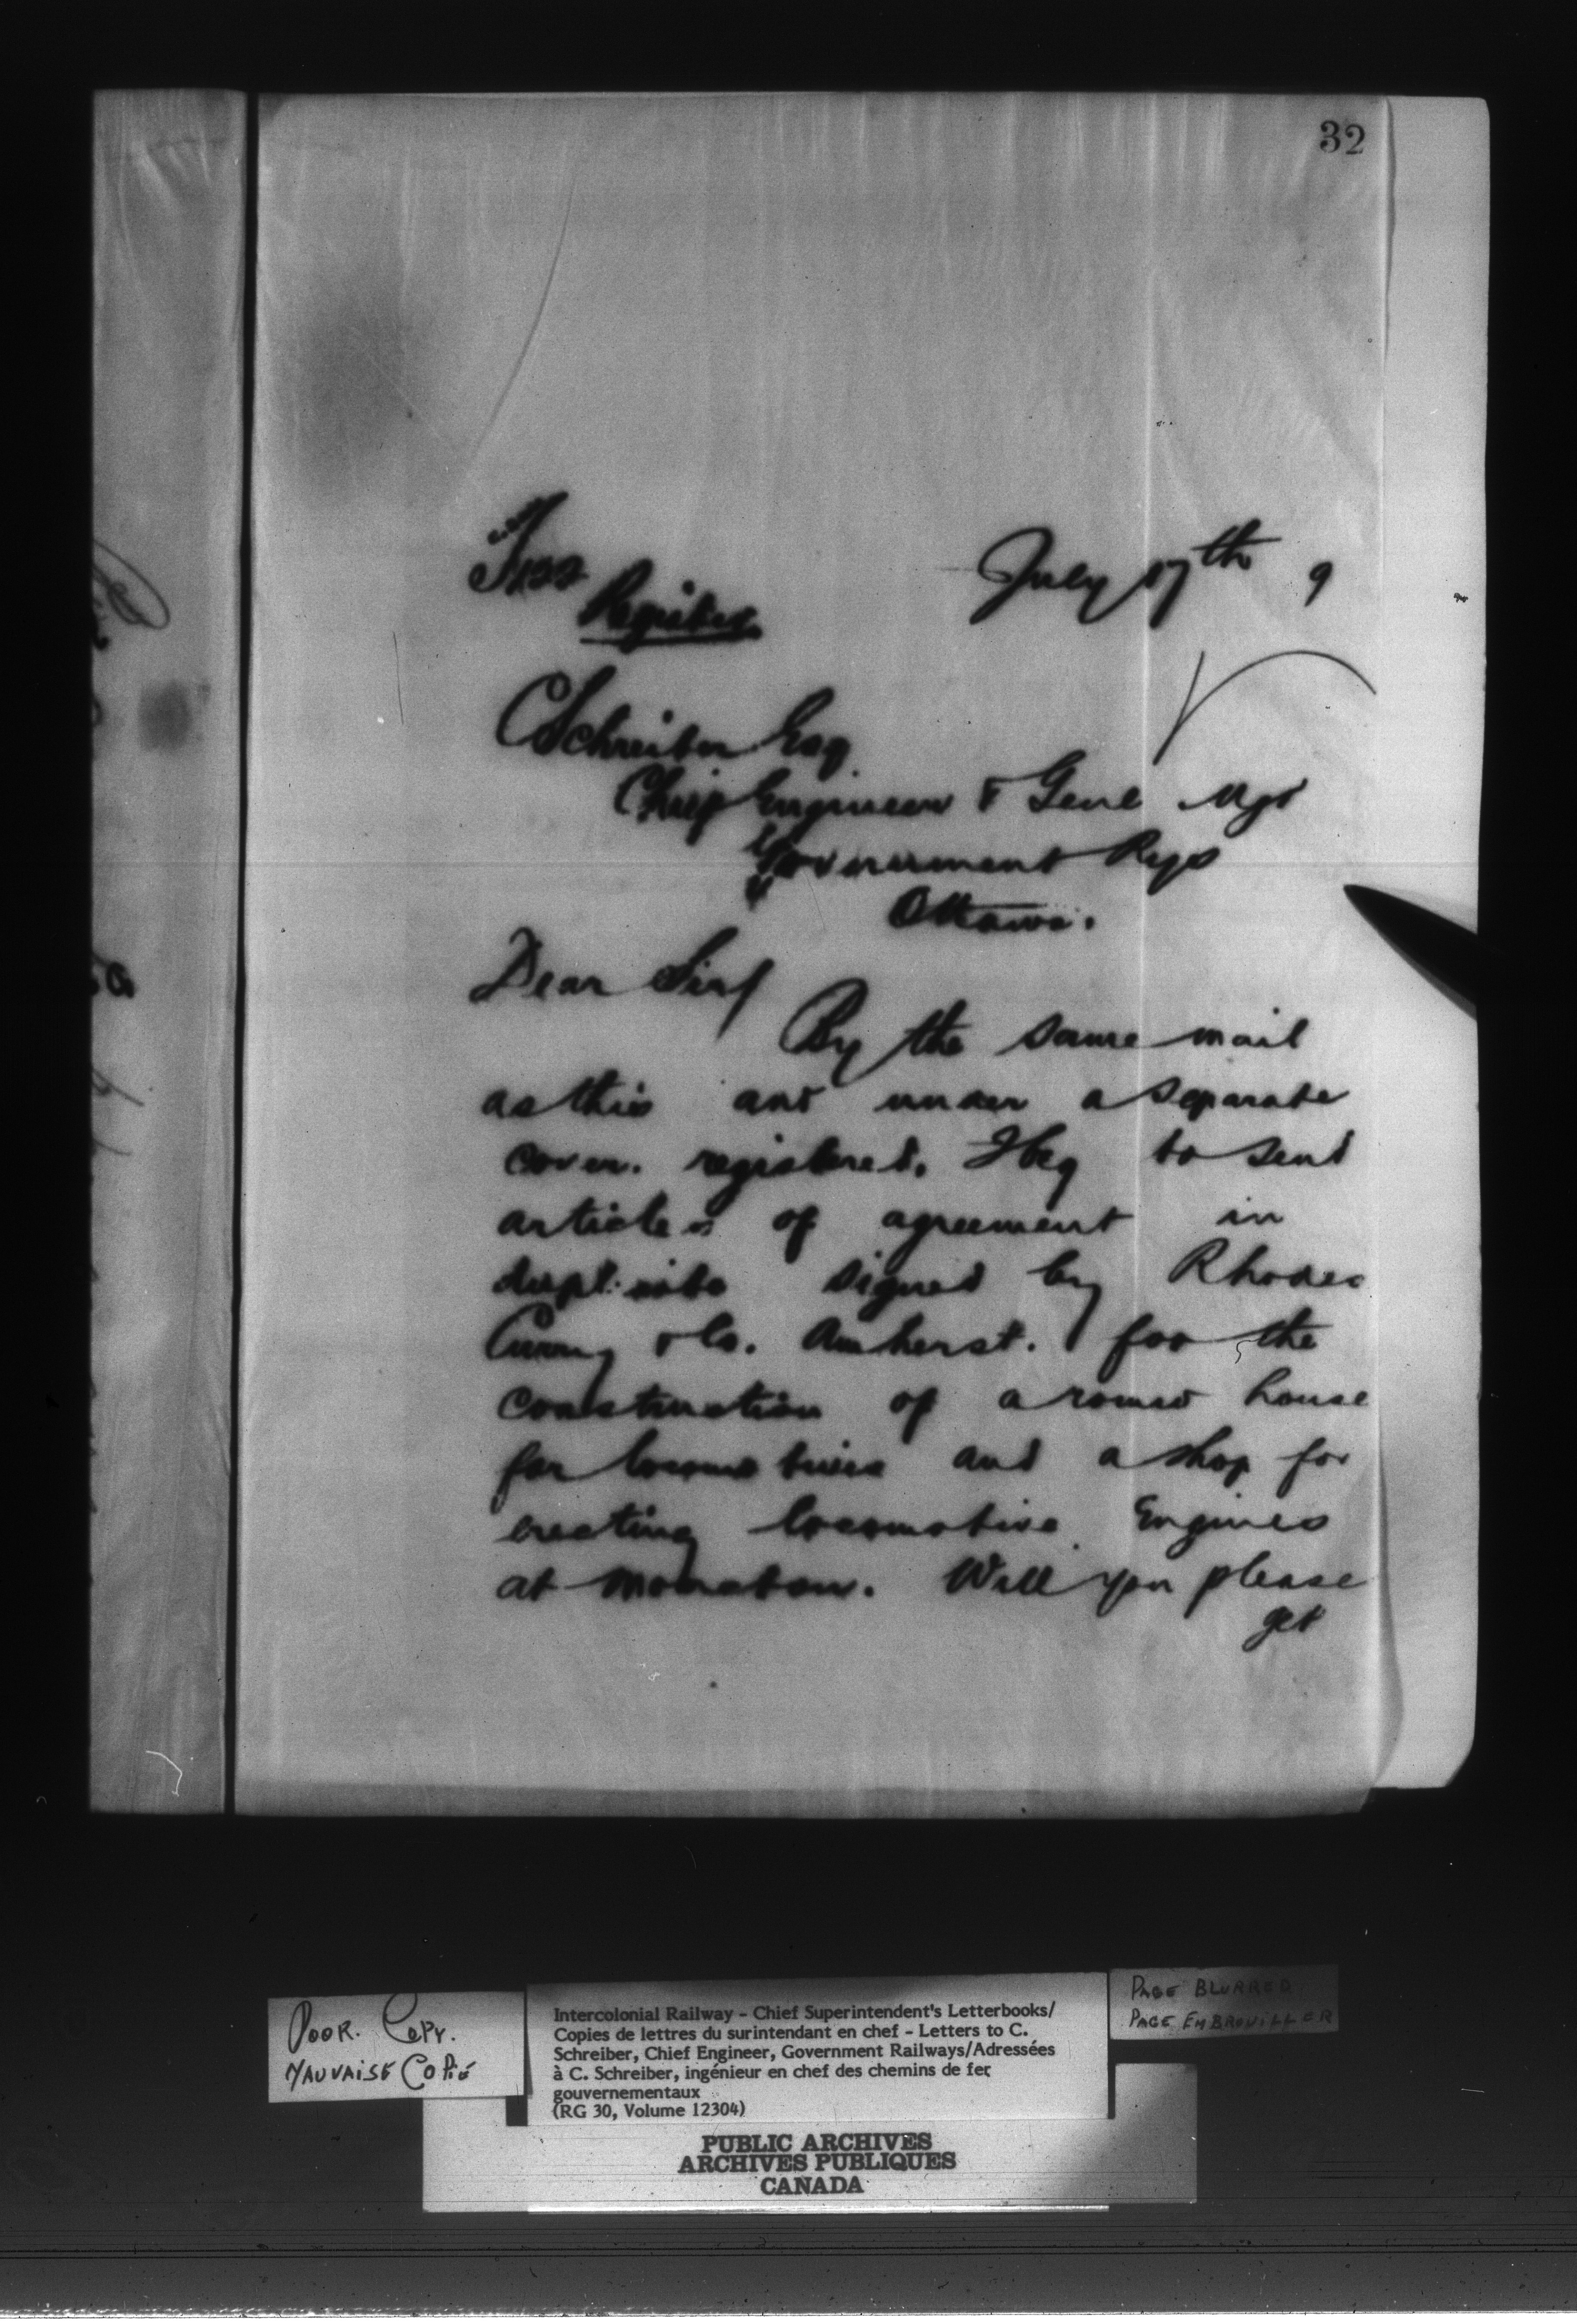 32
July 17th 9
Register
C Schreiber Esq
Chief Engineer & Genl Mgr
Government Rys
Ottawa.
Dear Sir/
By the same mail
as this and under a separate
cover. registered. I beg to send
articles of agreement in
duplicate signed by Rhodes
Curry & Co. Amherst. for the
construction of a round house
for locomotives and a shop for
erecting locomotive Engines
at Moncton. Will you please
get
POOR. COPY.
MAUVAISE COPIE
Intercolonial Railway – Chief Superintendent's Letterbooks/
Copies de lettres du surintendant en chef – Letters to C.
Schreiber, Chief Engineer, Government Railways/Adressées
à C. Schreiber, ingénieur en chef des chemins de fer,
gouvernementaux
(RG 30, Volume 12304)
PAGE BLURRED
PAGE EMBROUILLER
PUBLIC ARCHIVES
ARCHIVES PUBLIQUES
CANADA